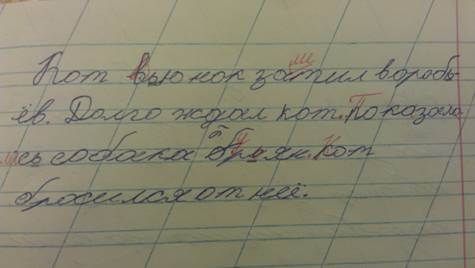 Кот вьюнок затил воробь-
ёв. Долго ждал кот. Показала
сь собака Буян. Кот
бросился от неё.